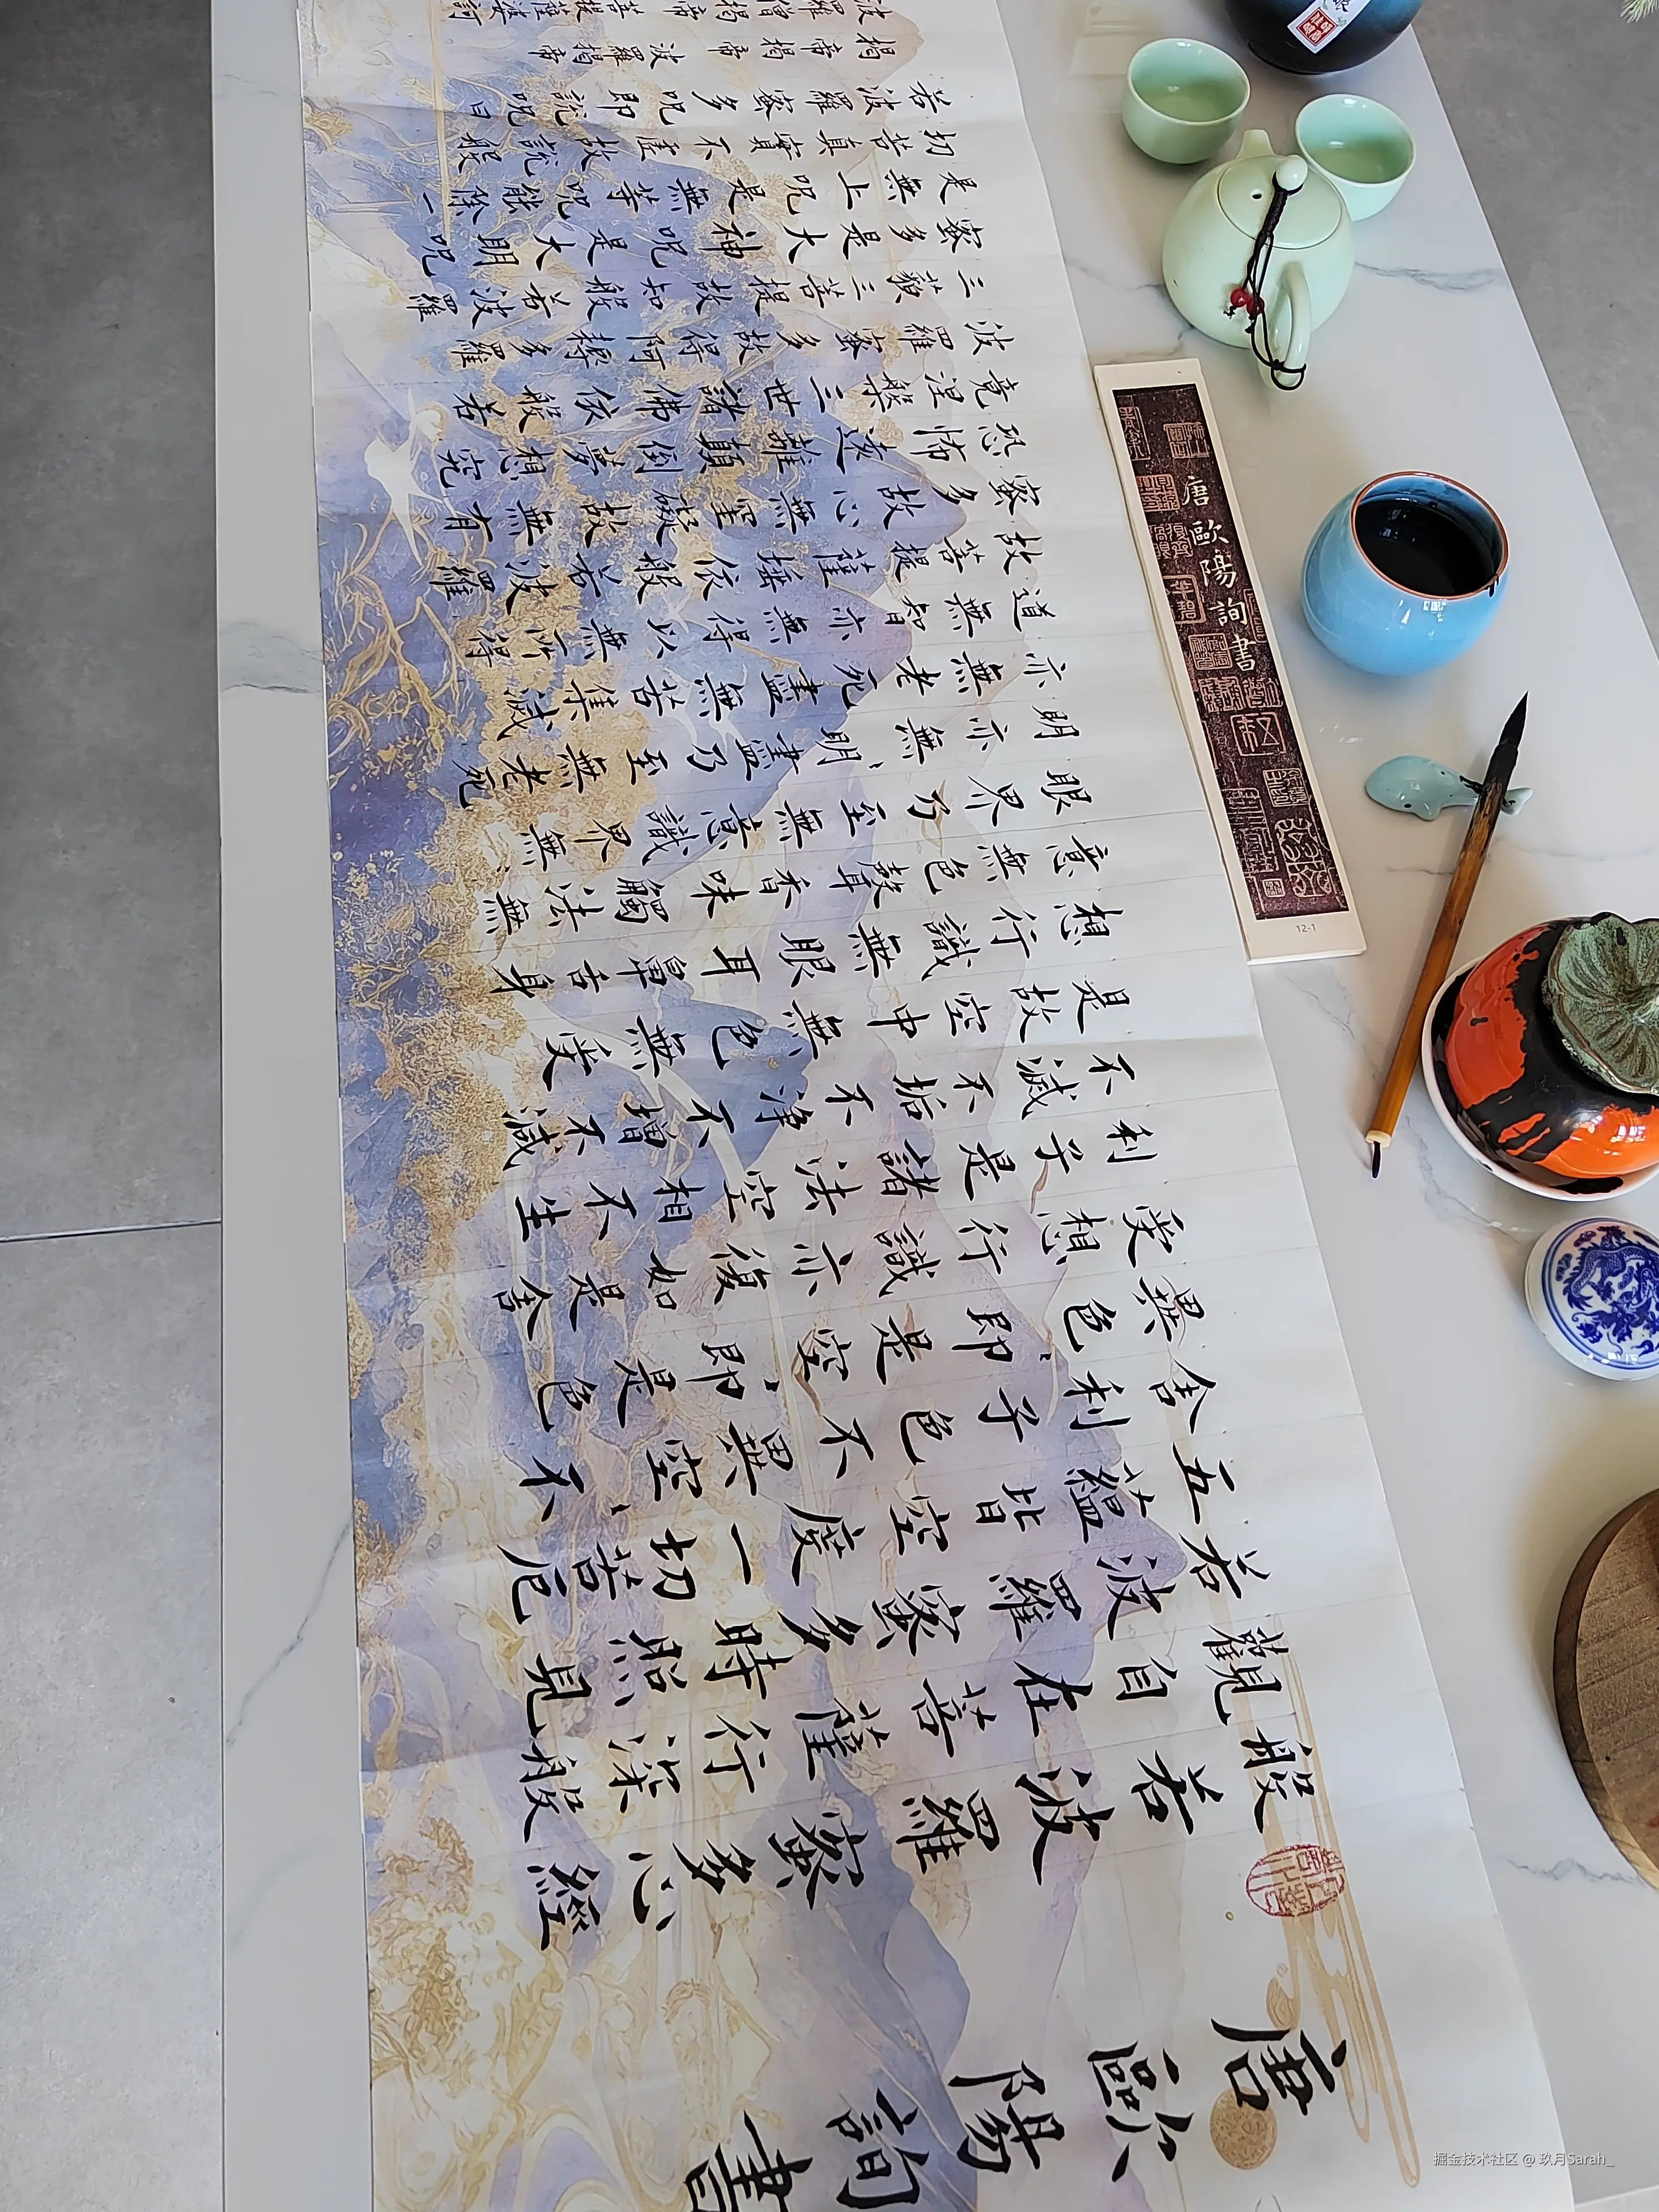 唐歐陽詢書
般若波羅蜜多心經
觀自在菩薩行深般
若波羅蜜多時照見
五蘊皆空度一切苦厄
舍利子色不異空、不
異色、即是空、即是色
受想行識亦復如是舍
利子是諸法空相不生
不滅不垢不淨不增不減
是故空中無色無受
想行識無眼耳鼻舌身
意無色聲香味觸法無
眼界乃至無意識界無、
明亦無、明盡乃至無老死
亦無老死盡無苦集滅
道無智亦無得以無所得
故菩提薩埵依般若波羅
蜜多故心無罣礙故無有
恐怖遠離顛倒夢想究
竟涅槃三世諸佛依般若
波羅蜜多故得阿耨多羅
三藐三菩提故知般若波羅
蜜多是大神呪是大明呪
是無上呪是無等呪能除一
切苦真實不虛故說般
若波羅蜜多呪即說呪曰
揭帝揭帝波羅揭帝
波羅僧揭帝菩提薩婆訶
唐歐陽詢書
12-1
掘金技术社区 @ 玖月Sarah_